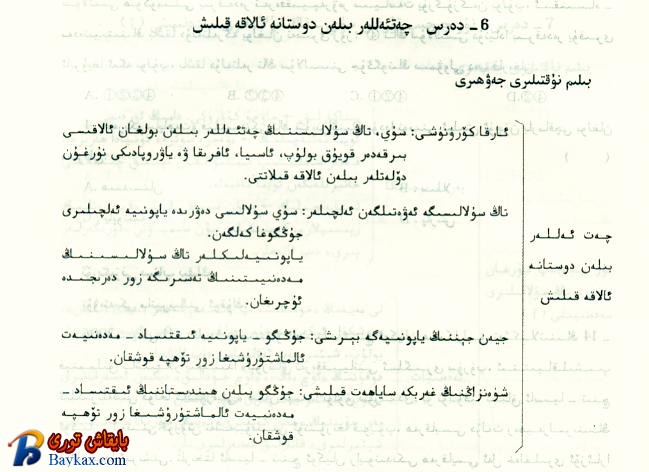 6 ـ دەرس چەتئەللەر بىلەن دوستانە ئالاقە قىلىش
بىلىم نۇقتىلىرى جەۋھىرى
چەت ئەللەر
بىلەن دوستانە
ئالاقە قىلىش
ئارقا كۆرۈنۈشى: سۈي، تاڭ سۇلالىسىنىڭ چەتئەللەر بىلەن بولغان ئالاقىسى
بىرقەدەر قويۇق بولۇپ، ئاسىيا، ئافرىقا ۋە ياۋروپادىكى نۇرغۇن
دۆلەتلەر بىلەن ئالاقە قىلاتتى.
تاڭ سۇلالىسىگە ئەۋەتىلگەن ئەلچىلەر: سۈي سۇلالىسى دەۋرىدە ياپونىيە ئەلچىلىرى
جۇڭگوغا كەلگەن.
ياپونىيەلىكلەر تاڭ سۇلالىسىنىڭ
مەدەنىيىتىنىڭ تەسىرىگە زور دەرىجىدە
ئۇچرىغان.
جيەن جېننىڭ ياپونىيەگە بېرىشى: جۇڭگو ـ ياپونىيە ئىقتىساد ـ مەدەنىيەت
ئالماشتۇرۇشىغا زور تۆھپە قوشقان.
شۈەنزاڭنىڭ غەربكە ساياھەت قىلىشى: جۇڭگو بىلەن ھىندىستاننىڭ ئىقتىساد ـ
مەدەنىيەت ئالماشتۇرۇشىغا زور تۆھپە
قوشقان.
بايقاش تورى
Baykax.com